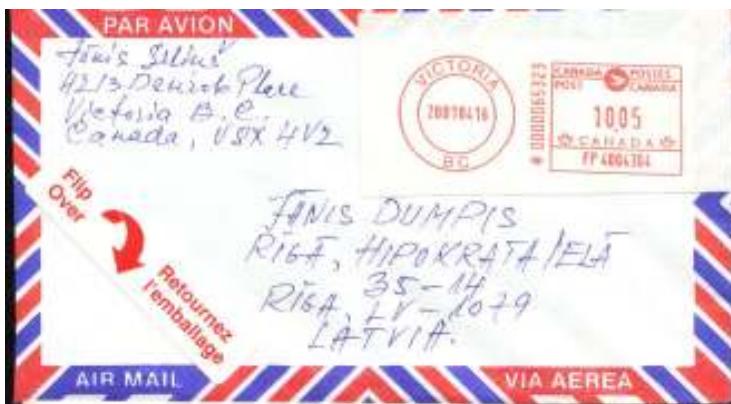 PAR AVION
Jānis
4213
Place
Victoria B.C.
Canada, V8X 4V2
VICTORIA
20010416
BC
CANADA POSTES
POST CANADA
1005
CANADA
FP 4004304
Flip
Over
Retournez
l'emballage
JĀNIS DUMPIS
RĪGĀ, HIPOKRATA IELĀ
35-14
RĪGA, LV-1079
LATVIA.
AIR MAIL
VIA AEREA